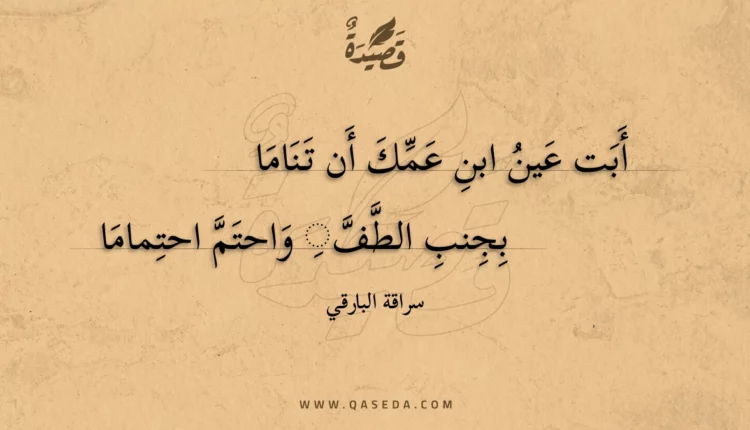 قَصِيْدَةٌ
أَبَت عَينُ ابنِ عَمِّكَ أَن تَنَامَا
بِجِنبِ الطَّفَّ ِ وَاحتَمَّ احتِمامَا
سراقة البارقي
WWW.QASEDA.COM